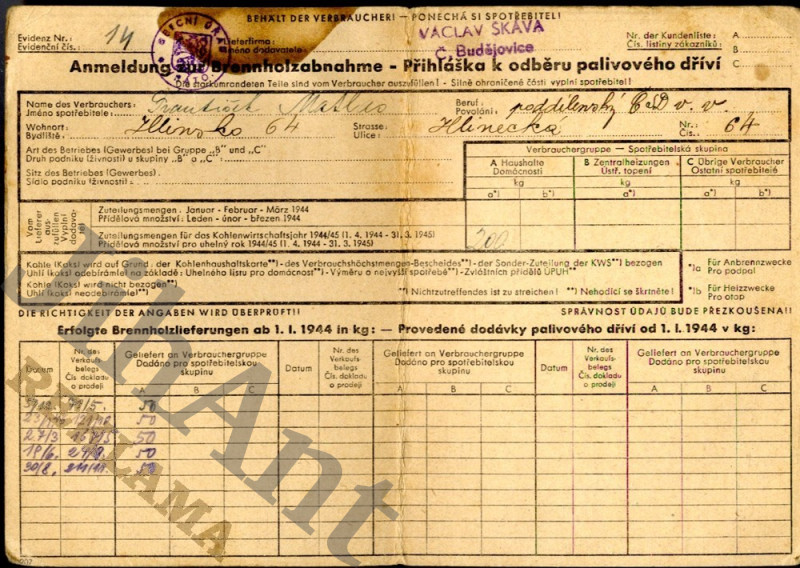 BEHÄLT DER VERBRAUCHER! – PONECHÁ SI SPOTŘEBITEL!
Evidenz Nr.: 14
Evidenční čís.:
Lieferfirma:
Jméno dodavatele:
VÁCLAV SKÁVA
Č. Budějovice
Nr. der Kundenliste: A
Čís. listiny zákazníků: B
C
Anmeldung zur Brennholzabnahme - Přihláška k odběru palivového dříví
Die starkumrandeten Teile sind vom Verbraucher auszufüllen! - Silně ohraničené části vyplní spotřebitel!
Name des Verbrauchers: František
Jméno spotřebitele:
Beruf:
Povolání:
Wohnort: Hlinsko 64
Bydliště:
Strasse: Hlinecká
Ulice:
Nr. 64
Čís.
Art des Betriebes (Gewerbes) bei Gruppe „B" und „C"
Druh podniku (živnosti) u skupiny „B" o „C":
Sitz des Betriebes (Gewerbes).
Sídlo podniku (živnosti):
Verbrauchergruppe - Spotřebitelská skupina
A Haushalte
Domácnosti
B Zentralheizungen
Ústř. topení
C Übrige Verbraucher
Ostatní spotřebitelé
kg kg kg
a*) b*) a*) b*) a*) b*)
Vom Lieferer auszufüllen
Vyplní dodavatel
Zuteilungsmengen: Januar - Februar - März 1944
Přídělová množství: Leden - únor - březen 1944
Zuteilungsmengen für das Kohlenwirtschaftsjahr 1944/45 (1. 4. 1944 - 31. 3. 1945)
Přídělová množství pro uhelný rok 1944/45 (1. 4. 1944 - 31. 3. 1945)
200
Kohle (Koks) wird auf Grund: der Kohlenhaushaltskarte**) - des Verbrauchshöchstmengen-Bescheides**) - der Sonder-Zuteilung der KWS**) bezogen
Uhlí (koks) odebírám(e) na základě: Uhelného listru pro domácnost**) - Výměru o nejvyšší spotřebě**) - Zvláštních přídělů ÚPUH**)
Kohle (Koks) wird nicht bezogen**)
Uhlí (koks) neodebírám(e)**)
**) Nichtzutreffendes ist zu streichen! **) Nehodící se škrtněte!
*)a Für Anbrennzwecke
Pro podpal
*)b Für Heizzwecke
Pro otop
DIE RICHTIGKEIT DER ANGABEN WIRD ÜBERPRÜFT!
SPRÁVNOST ÚDAJŮ BUDE PŘEZKOUŠENA!!
Erfolgte Brennholzlieferungen ab 1. I. 1944 in kg: — Provedené dodávky palivového dříví od 1. I. 1944 v kg:
Datum
Nr. des Verkaufsbelegs
Čís. dokladu o prodeji
Geliefert an Verbrauchergruppe
Dodáno pro spotřebitelskou skupinu
A B C
Datum
Nr. des Verkaufsbelegs
Čís. dokladu o prodeji
Geliefert an Verbrauchergruppe
Dodáno pro spotřebitelskou skupinu
A B C
Datum
Nr. des Verkaufsbelegs
Čís. dokladu o prodeji
Geliefert an Verbrauchergruppe
Dodáno pro spotřebitelskou skupinu
A B C
50
50
27/3 50
18/6. 50
30/8. 50
JihAnt
REKLAMA